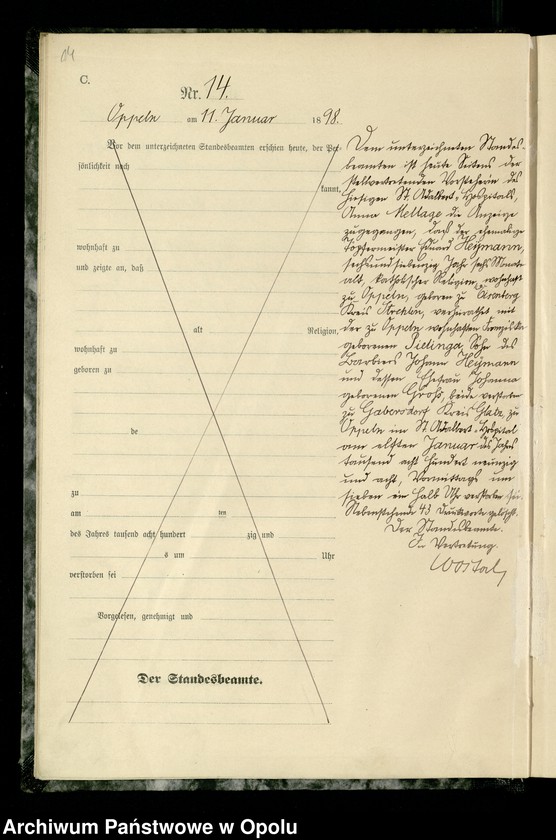 14
C.
Nr. 14.
Oppeln am 11. Januar 1898.
Vor dem unterzeichneten Standesbeamten erschien heute, der Per-
sönlichkeit nach
kannt,
wohnhaft zu
und zeigte an, daß
alt Religion,
wohnhaft zu
geboren zu
de
zu
am ten
des Jahres tausend acht hundert zig und
s um Uhr
verstorben sei
Vorgelesen, genehmigt und
Der Standesbeamte.
Dem unterzeichneten Standes-
beamten ist heute Seitens der
stellvertretenden Vorsteherin des
hiesigen St. Adalbert-Hospitals,
Anna Mellage die Anzeige
zugegangen, daß der ehemalige
Töpfermeister Eduard Heymann,
sechsundsiebenzig Jahr sechs Monate
alt, katholischer Religion, wohnhaft
zu Oppeln, geboren zu
Kreis Strehlen, verheirathet mit
der zu Oppeln wohnhaften Franziska
geborenen Pielinga, Sohn des
Barbiers Johann Heymann
und dessen Ehefrau Johanna
geborenen Groß, beide verstorben
zu Gabersdorf Kreis Glatz, zu
Oppeln im St. Adalbert-Hospital
am elften Januar des Jahres
tausend acht hundert neunzig
und acht, Vormittags um
sieben ein halb Uhr verstorben sei.
Nebenstehend 43 Druckworte gelöscht.
Der Standesbeamte.
In Vertretung.
Wostal
Archiwum Państwowe w Opolu